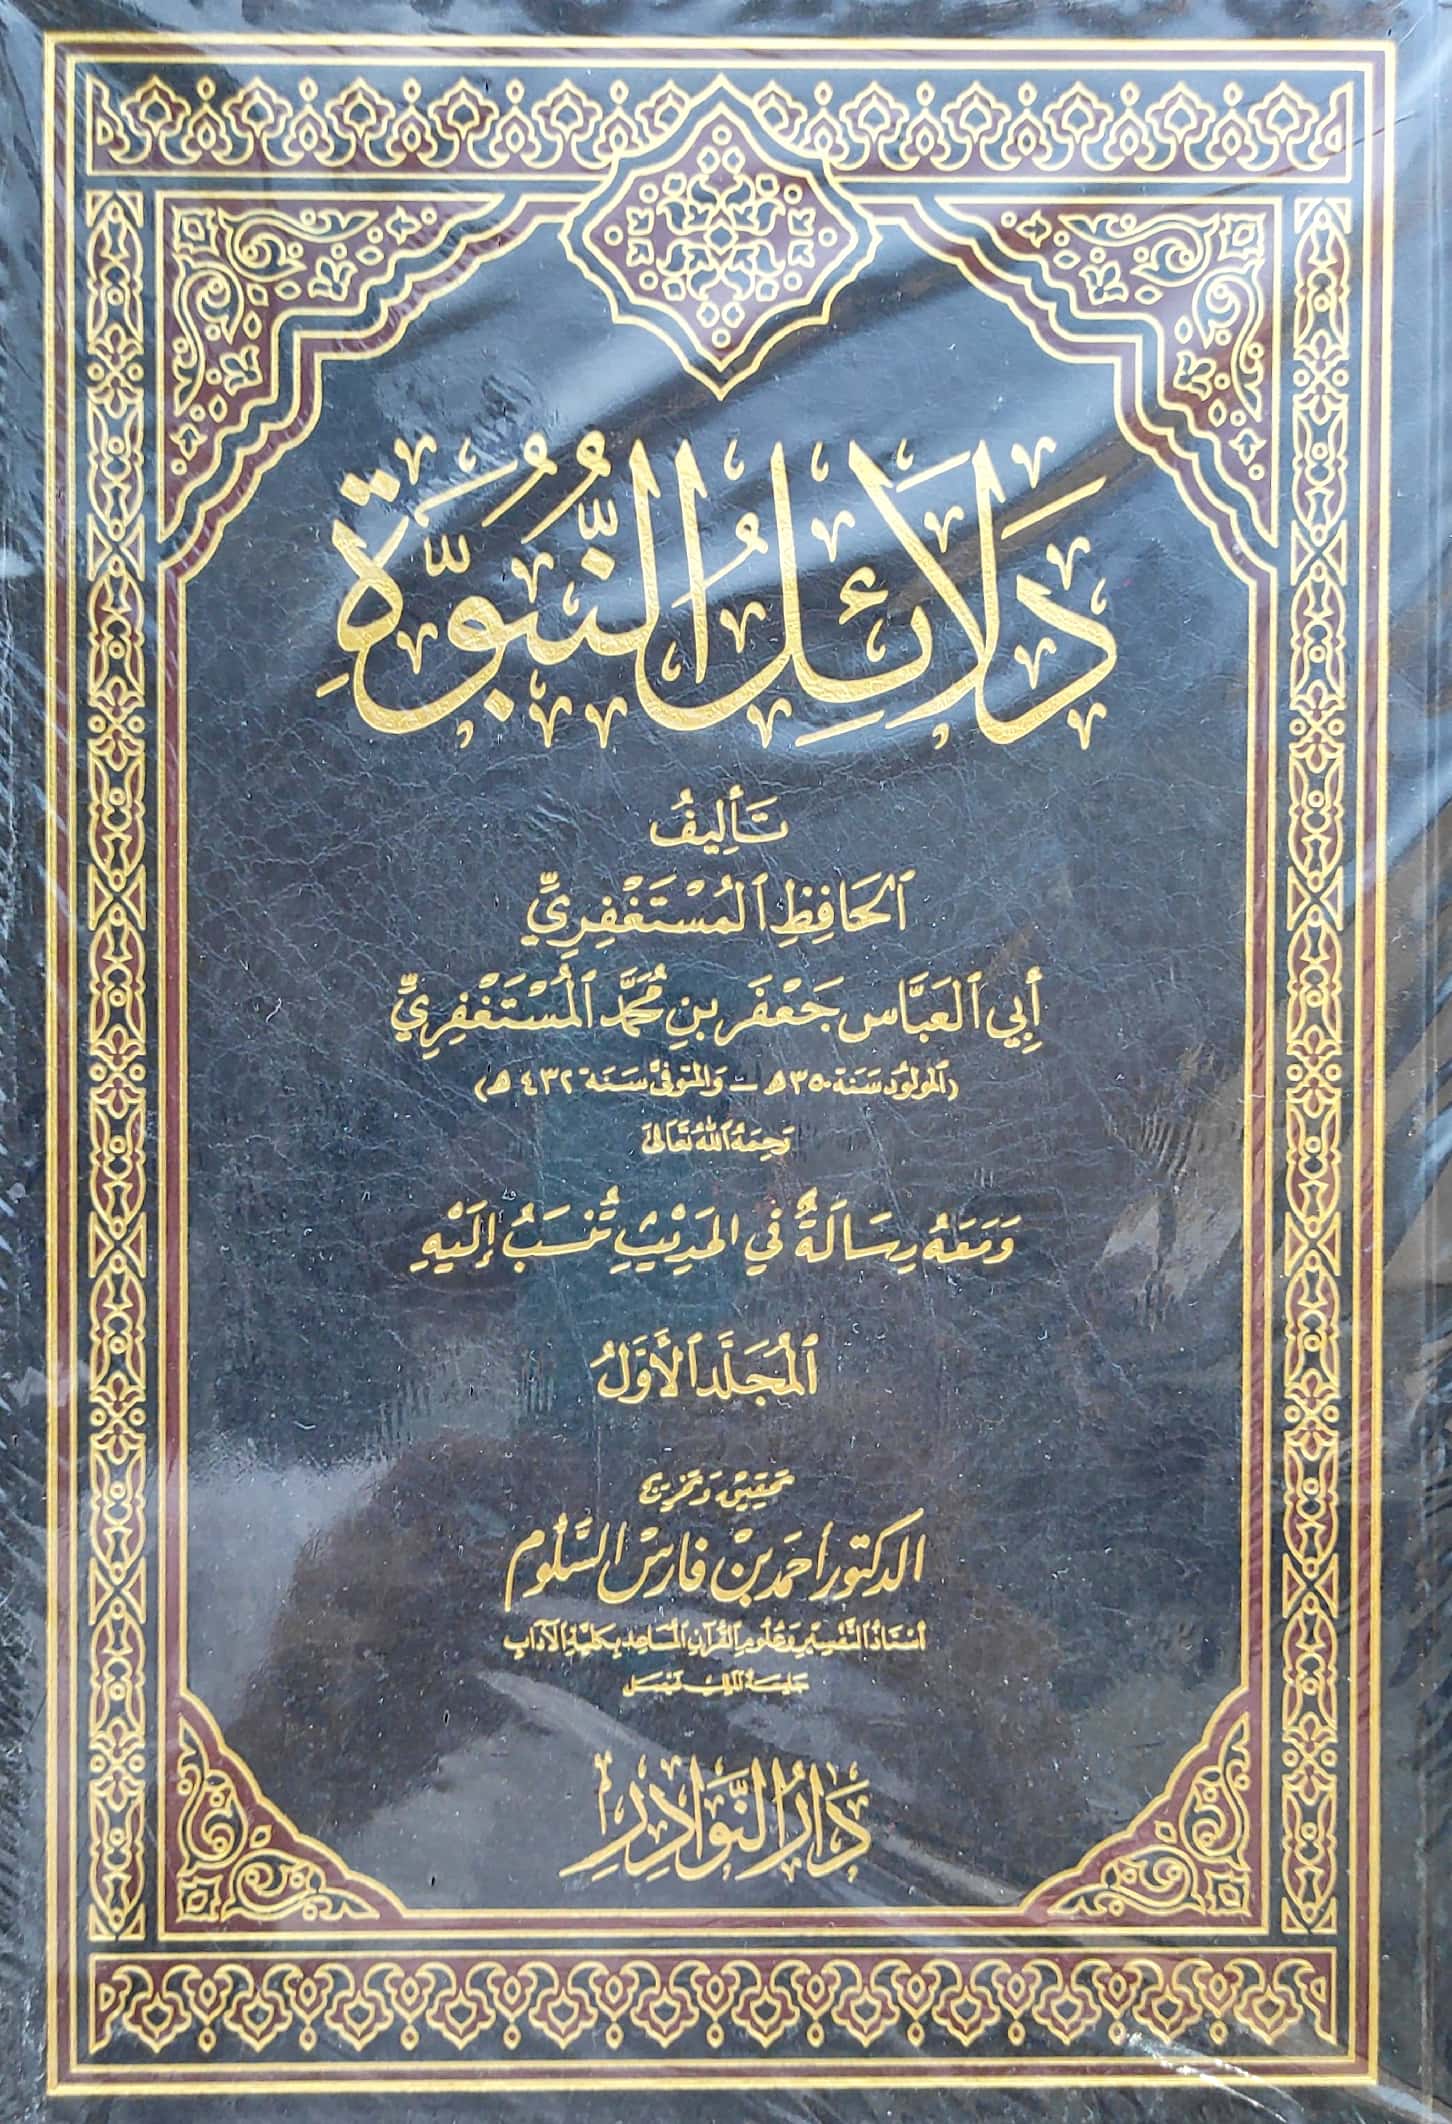 دَلَائِلُ النُّبُوَّةِ
تَأليفُ
الحَافِظِ المُسْتَغْفِرِيِّ
أَبِي العَبَّاس جَعْفَر بنِ مُحَمَّد المُسْتَغْفِرِيِّ
(المولود سَنَة ٣٥٠ هـ - وَالمتوفَّى سَنَة ٤٣٢ هـ)
رَحِمَهُ اللهُ تَعَالَى
وَمَعَهُ رِسَالَةٌ فِي الحَدِيْثِ تُنْسَبُ إِلَيْهِ
المُجَلَّد الأَوَّلُ
تحقيق وَتخريج
الدكتور أحمد بن فارس السَّلُوم
أُسْتَاذُ التَّفْسِيْرِ وَعُلُومِ القُرْآنِ المُسَاعِد بِكليَّةِ الآدَابِ
جَامِعَةُ المَلِك فَيْصَل
دَارُ النَّوَادِرِ